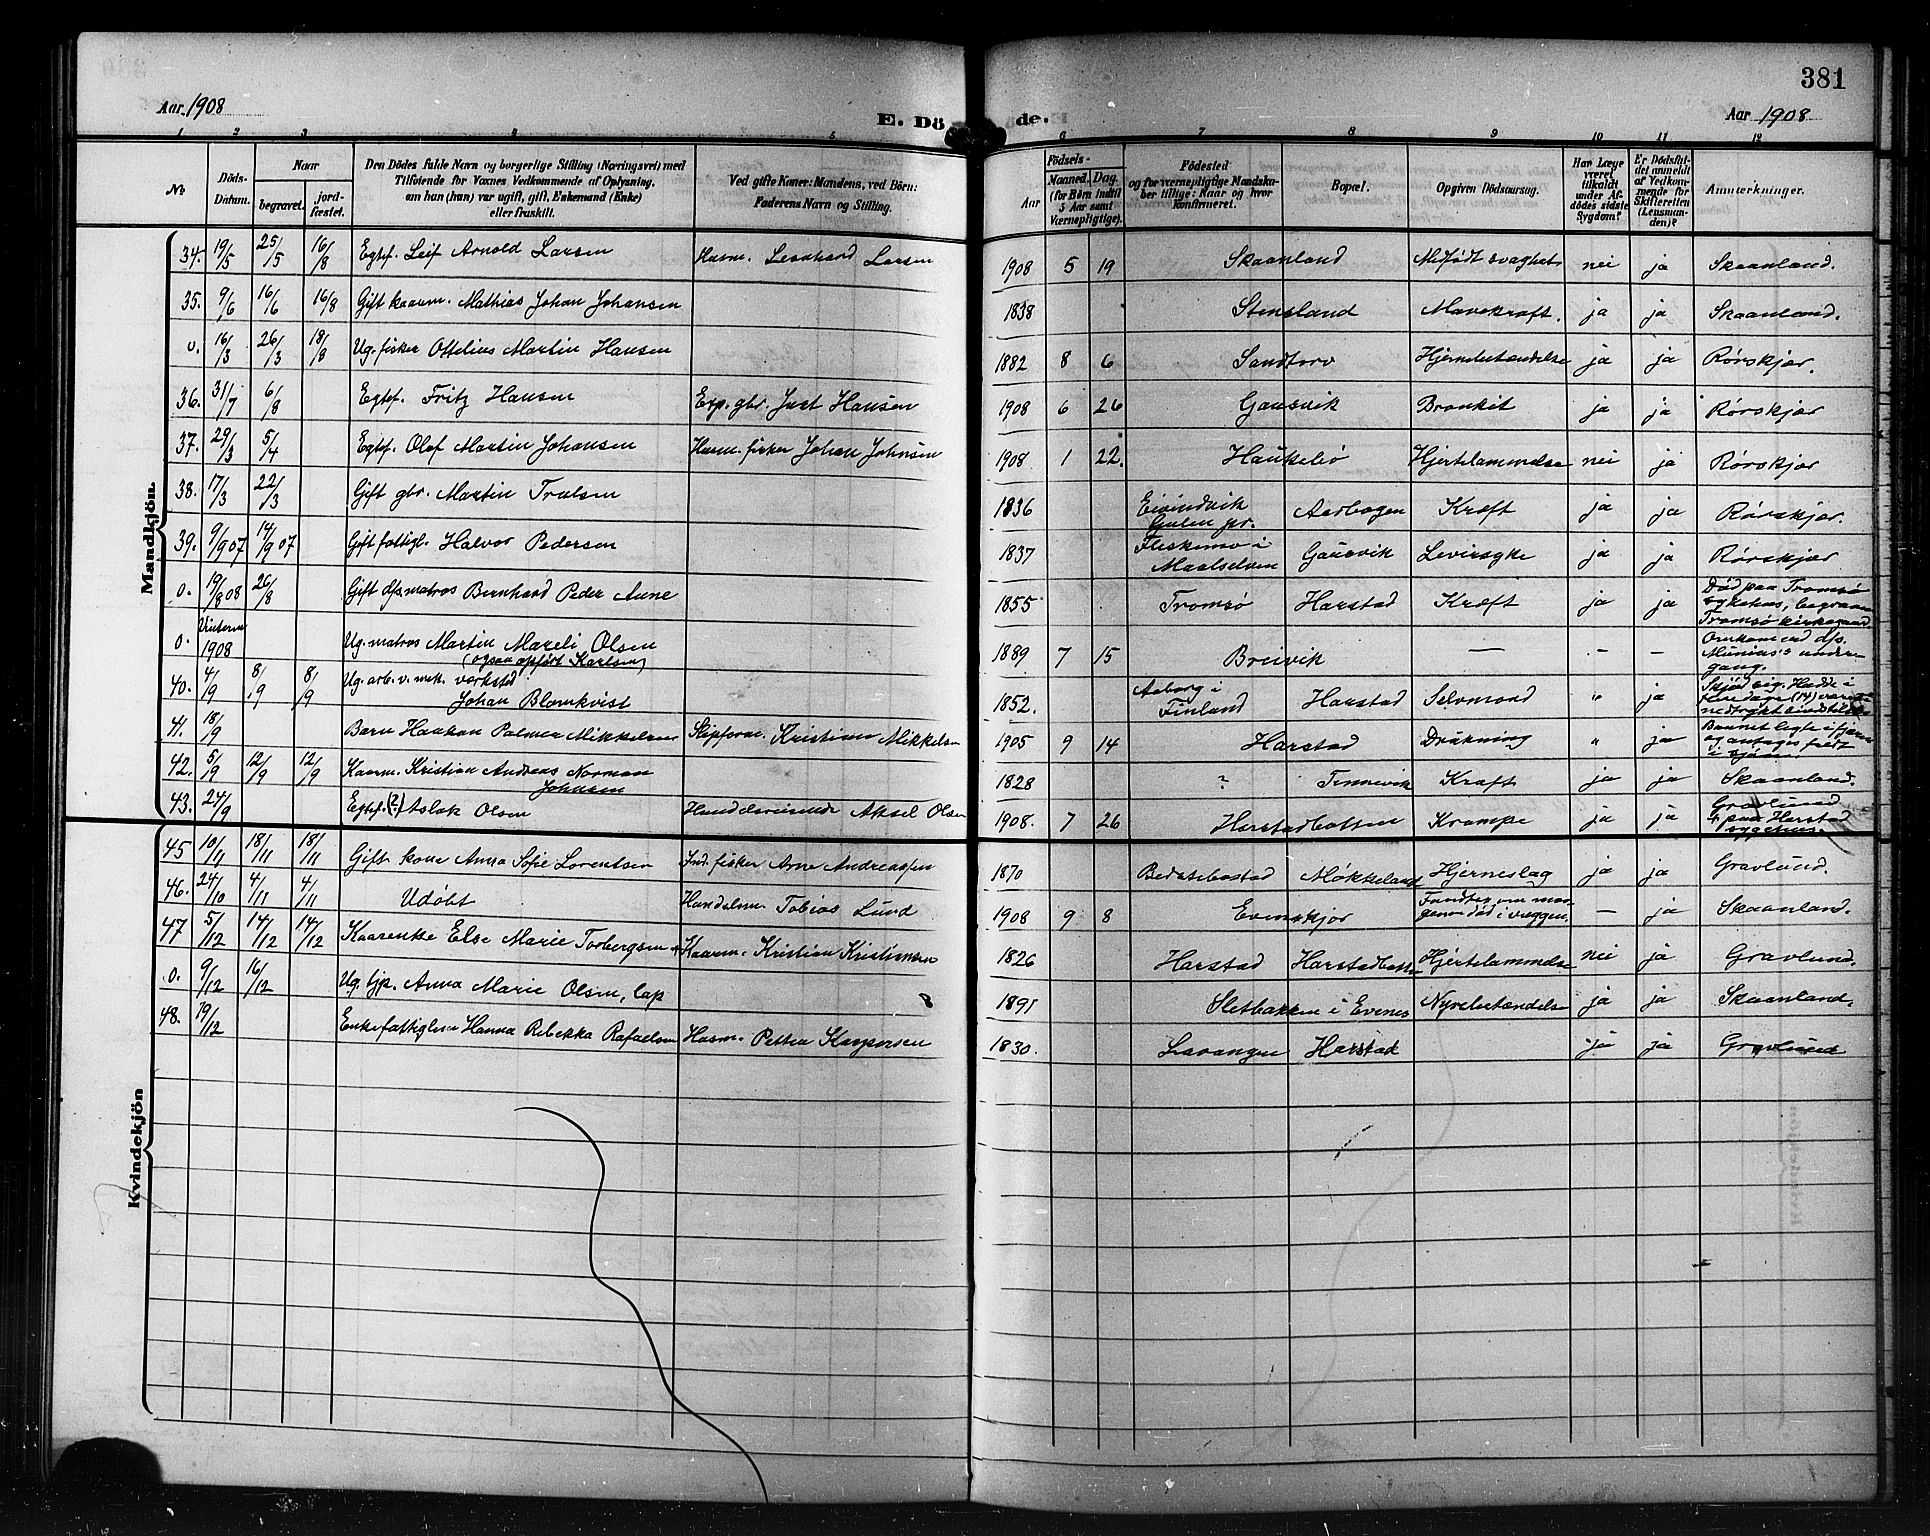 381
Aar 1908
E. Dö
de.
Aar 1908
1 2 3 4 5 6 7 8 9 10 11 12
No
Döds-Datum.
Naar
begravet.
jord-fæstet.
Den Dödes fulde Navn og borgerlige Stilling (Næringsvei) med
Tilföiende for Voxnes Vedkommende af Oplysning,
om han (hun) var ugift, gift, Enkemand (Enke)
eller fraskilt.
Ved gifte Koner: Mandens, ved Börn:
Faderens Navn og Stilling.
Födsels-
Aar
Maaned. Dag.
(for Börn indtil
5 Aar samt
Værnepligtige).
Födested
og for værnepligtige Mandska-
ber tillige: Naar og hvor
konfirmeret.
Bopæl.
Opgiven Dödsaarsag.
Har Læge
været
tilkaldt
under Af-
dödes sidste
Sygdom?
Er Dödsfal-
det anmeldt
af Vedkom-
mende for
Skifteretten
(Lensman-
den)?
Anmærkninger.
Mandkjön
34. 19/5 25/5 16/8 Egtef. Leif Arnold Larsen Husm. Leonhard Larsen 1908 5 19 Skaanland Medfødt svaghet nei ja Skaanland.
35. 9/6 16/6 16/8 Gift kaarm. Mathias Johan Johansen 1838 Stensland Mavekræft. ja ja Skaanland.
0. 16/3 26/3 18/8 Ug. fisker Ottelius Martin Hansen 1882 8 6 Sandtorv Hjernebetændelse ja ja Rørskjær.
36. 31/7 6/8 Egtef. Fritz Hansen Exp. gbr. Just Hansen 1908 6 26 Gausvik Bronkit ja ja Rørskjær
37. 29/3 5/4 Egtef. Olaf Martin Johansen Husm. fisker Johan Johnsen 1908 1 22. Haukebø Hjertelammelse nei ja Rørskjær
38. 17/3 22/3 Gift gbr. Martin Trælsen 1836 Eivindvik Gulen pr. Aarbogen Kræft ja ja Rørskjær.
39. 9/9 07 14/9 07 Gift fattigl. Halvor Pedersen 1837 Fleskemo i Maalselven Gausvik Leversyke ja ja Rørskjær
0. 19/8 08 26/8 Gift d/s matros Bernhard Peder Aune 1855 Tromsø Harstad Kræft ja ja Død paa Tromsø
sykehus, begraven
Tromsø kirkegaard.
0. Vinteren 1908 Ug. matros Martin Mareli Olsen
(ogsaa opført Karlsen) 1889 7 15 Breivik — — — Omkom ved d/s.
"Munins" under-
gang.
40. 4/9 8/9 8/9 Ug. arb. v. mek. verksted
Johan Blomkvist 1852. Aaborg i Finland Harstad Selvmord " ja Skjød sig. Hadde i
flere dage (14) været
nedtrykt
41. 18/9 Barn Haakon Palmer Mikkelsen Skipsfører. Kristian Mikkelsen 1905 9 14 Harstad Drukning " ja Barnet legte i fjæren
og antages faldt
i sjøen.
42. 5/9 12/9 12/9 Kaarm. Kristian Andreas Norman
Johnsen 1828 ? Tennevik Kræft ja ja Skaanland.
43. 24/9 Egtef. (2.) Aslak Olsen Handelsreisende Aksel Olsen 1908. 7 26 Harstadbotten Krampe ja ja Gravlund
† paa Harstad
sygehus.
Kvindekjön
45 10/11 18/11 18/11 Gift kone Anna Sofie Lorentsen Ind. fisker Arne Andreassen 1870 Møkkeland Hjerneslag ja ja Gravlund.
46. 24/10 4/11 4/11 Udøbt Handelsm. Tobias Lund 1908 9 8 Evenskjær Fandtes om mor-
genen død i vuggen. — ja Skaanland.
47 5/12 14/12 14/12 Kaarenke Else Marie Torbergsen Kaarm. Kristian Kristiansen 1826 Harstad Harstadbotten Hjertelammelse nei ja Gravlund.
0. 9/12 16/12 Ug. tjp. Anna Marie Olsen, lap 1891 Sletbakken i Evenes Nyrebetændelse ja ja Skaanland.
48. 19/12 Enke fattiglem Hanna Rebekka Rafaelsen Husm. Petter Kaspersen 1830. Lavangen Harstad ja ja Gravlund